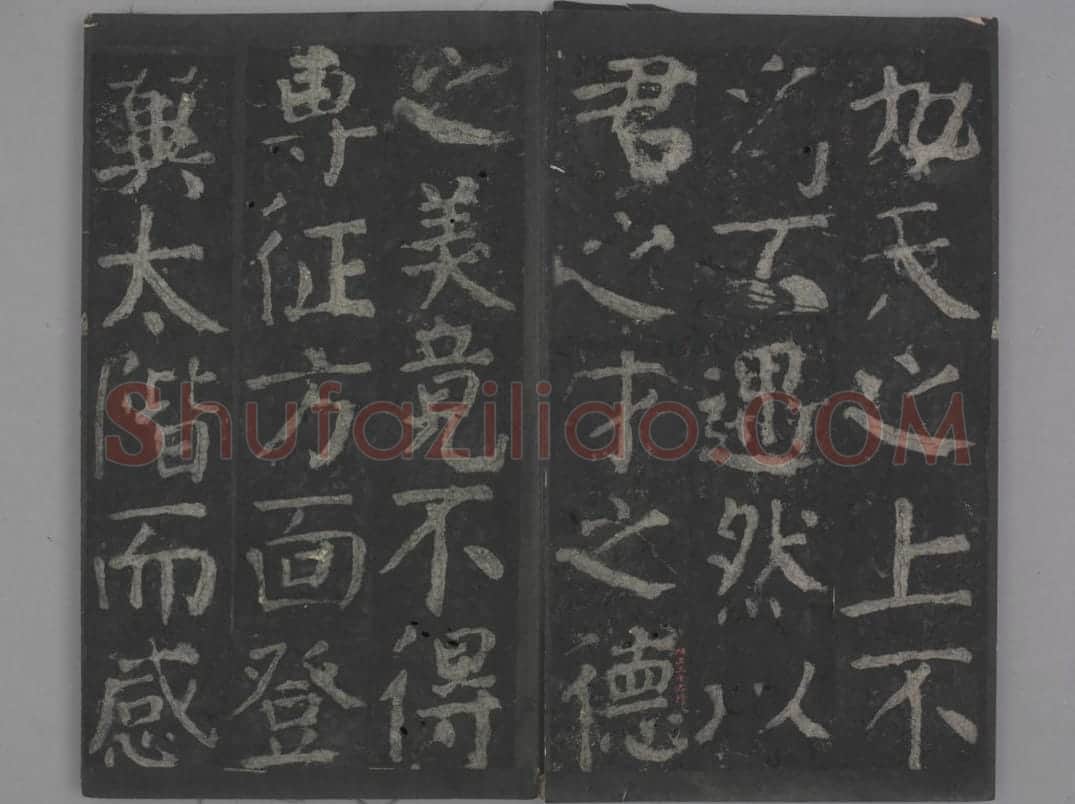 天之上不
為不遇然以
君之才之德
之美竟不得
專征方面登
翼太階而感
Shufaziliao.COM